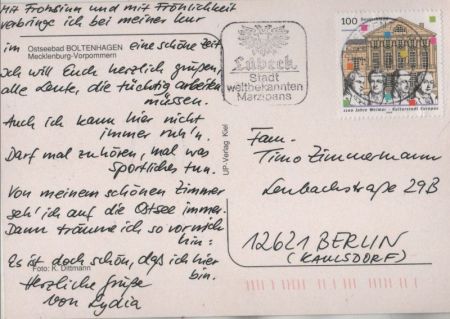 Mit Frohsinn und mit Fröhlichkeit
verbringe ich bei meiner Kur
im
Ostseebad BOLTENHAGEN
Mecklenburg-Vorpommern
eine schöne Zeit.
Ich will Euch herzlich grüßen,
alle Leute, die tüchtig arbeiten
müssen.
Auch ich kann hier nicht
immer ruh'n.
Darf mal zuhören, mal was
Sportliches tun.
Von meinem schönen Zimmer
seh' ich auf die Ostsee immer.
Dann träume ich so vor mich
hin:
Es ist doch schön, daß ich hier
bin.
Foto: K. Dittmann
Herzliche Grüße
von Lydia
UP-Verlag Kiel
Lübeck
Stadt
weltbekannten
Marzipans
100
1100 Jahre Weimar · Kulturstadt Europas
Fam.
Timo Zimmermann
Lenbachstraße 29B
12621 BERLIN
(KAULSDORF)